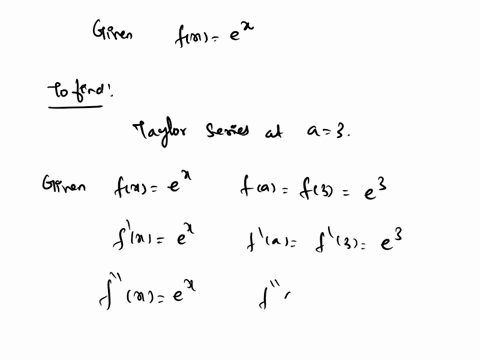 Given f(x) = e^x
To find:
Taylor Series at a=3.
Given f(x) = e^x f(a) = f(3) = e^3
f'(x) = e^x f'(a) = f'(3) = e^3
f''(x) = e^x f''(